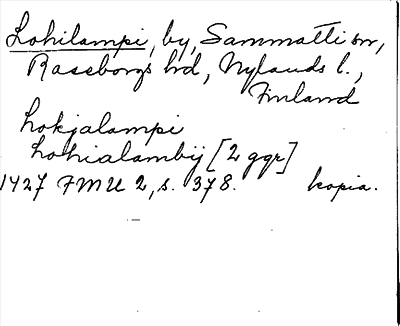 Lohilampi, by, Sammatti sn,
Raseborgs hd, Nylands l.,
Finland
Lokjalampi
Lohialambij [2 ggr]
1427 FMU 2, s. 378. kopia.